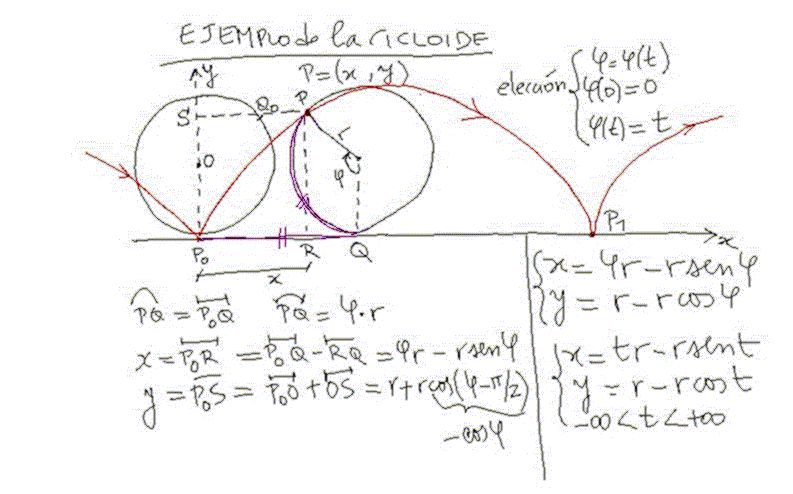 EJEMPLO de la CICLOIDE
y
P=(x,y)
elección { φ=φ(t)
φ(0)=0
φ(t)=t
S
Q₀
P
r
O
φ
P₀
R
Q
P₁
x
x
PQ = P₀Q PQ = φ·r
x = P₀R = P₀Q - RQ = φr - r sen φ
y = P₀S = P₀O + OS = r + r cos(φ-π/2)
-cosφ
{ x = φr - r sen φ
y = r - r cos φ
{ x = tr - r sen t
y = r - r cos t
-∞ < t < +∞